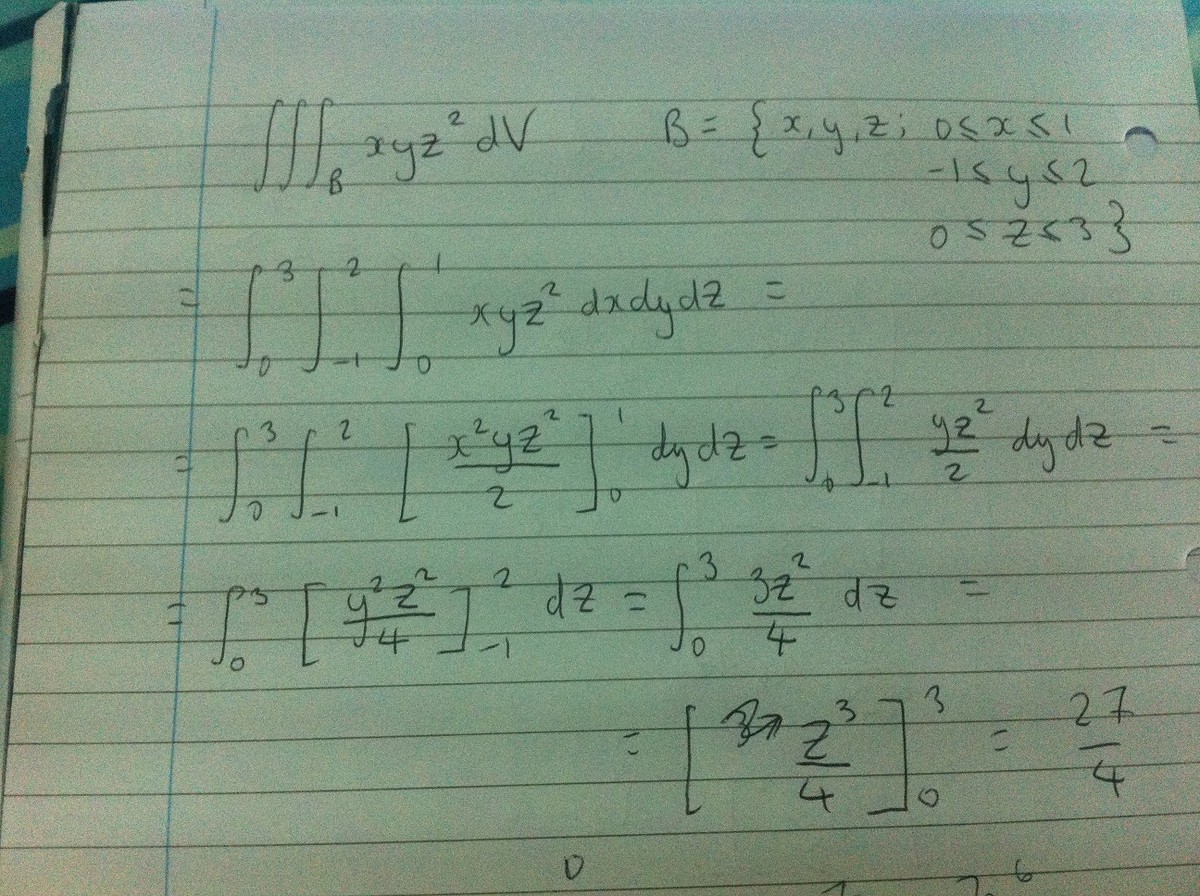 ∭_B xyz² dV    B = { x, y, z; 0 ≤ x ≤ 1
-1 ≤ y ≤ 2
0 ≤ z ≤ 3 }
= ∫_0^3 ∫_{-1}^2 ∫_0^1 xyz² dx dy dz =
= ∫_0^3 ∫_{-1}^2 [ x²yz² / 2 ]_0^1 dy dz = ∫_0^3 ∫_{-1}^2 yz² / 2 dy dz =
= ∫_0^3 [ y²z² / 4 ]_{-1}^2 dz = ∫_0^3 3z² / 4 dz =
= [ z³ / 4 ]_0^3 = 27 / 4